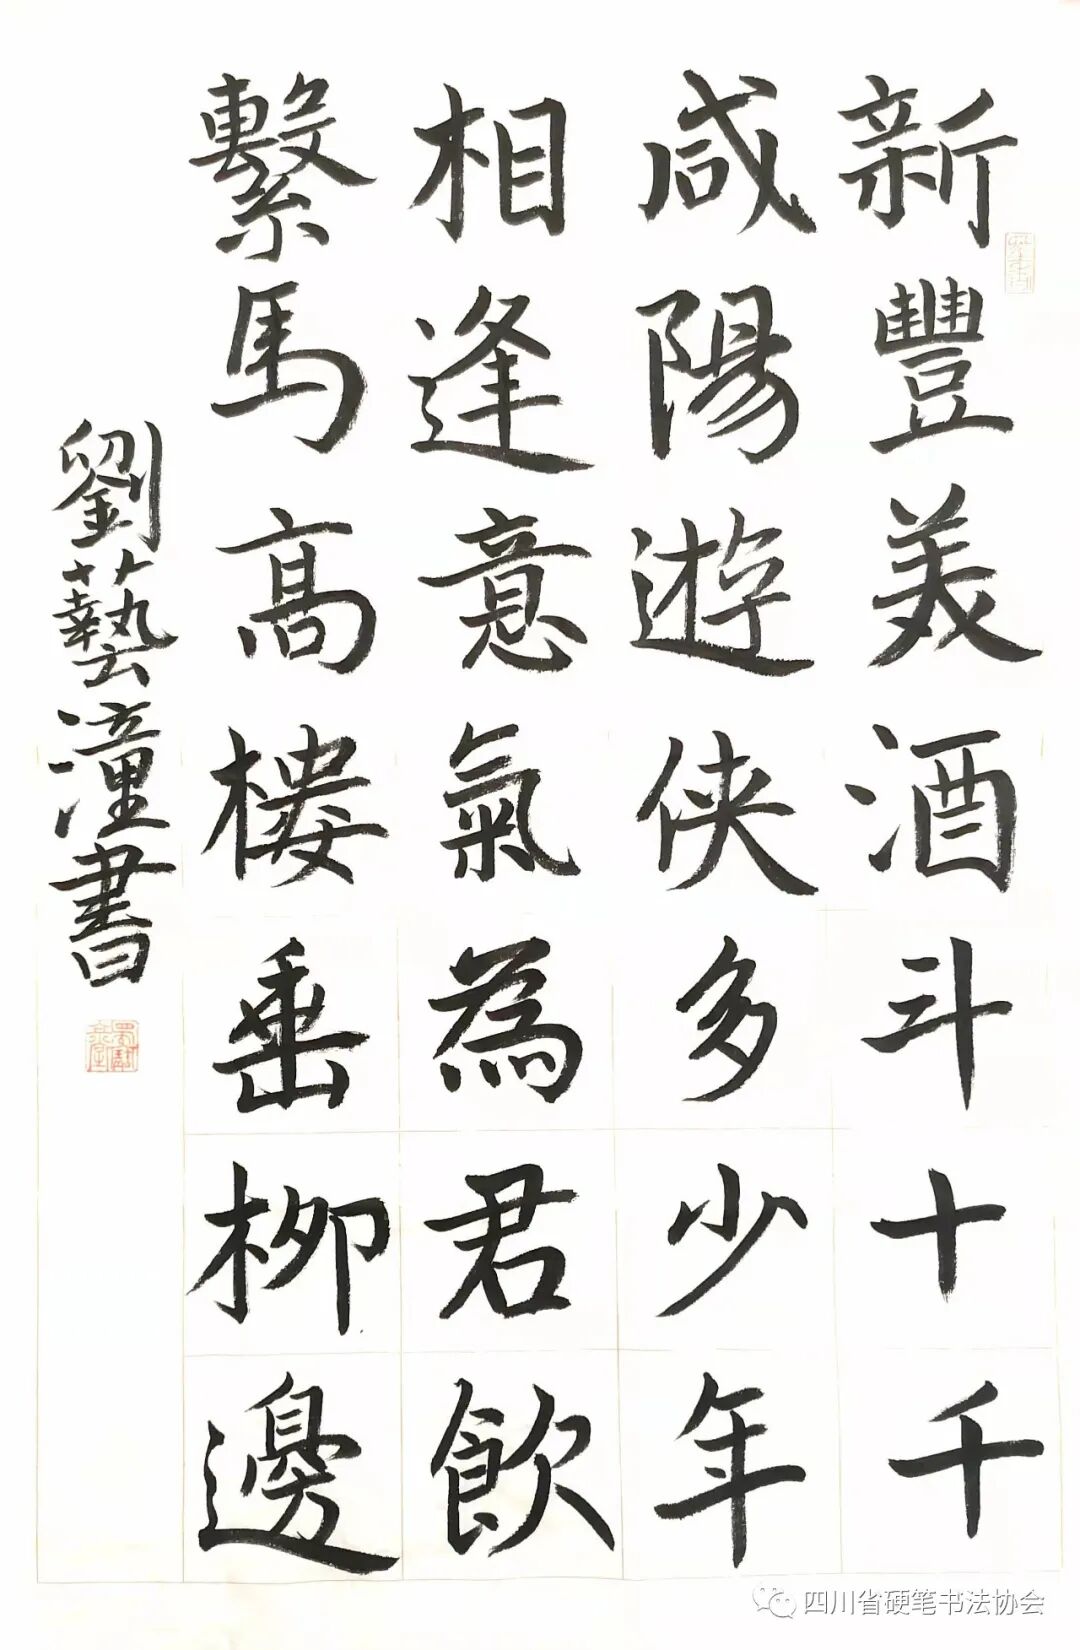 新豐美酒斗十千
咸陽遊俠多少年
相逢意氣為君飲
繫馬高樓垂柳邊
劉藝潼書
四川省硬笔书法协会